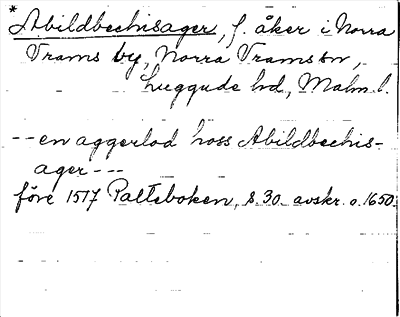 * Abildbechisager, f. åker i Norra
Vrams by, Norra Vrams sn,
Luggude hd, Malm. l.
-- en aggerlod hoss Abildbechis-
ager ---
före 1517 Palteboken, s. 30. avskr. o. 1650.